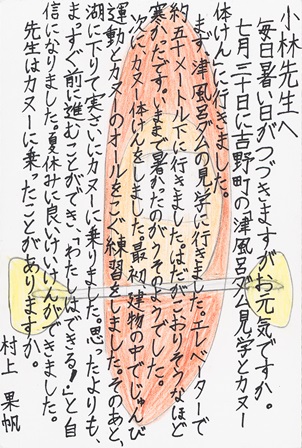 小林先生へ
毎日暑い日がつづきますがお元気ですか。
七月三十日に吉野町の津風呂ダム見学とカヌー
体けんに行きました。
まず、津風呂ダムの見学に行きました。エレベーターで
約五十メートル下へ行きました。はだがこおりそうなほど
寒かったです。いままで暑かったのが、うそのようでした。
次にカヌー体けんをしました。最初、建物の中でじゅんび
運動とカヌーのオールをこぐ練習をしました。そのあと、
湖に下りて実さいにカヌーに乗りました。思ったよりも、
まっすぐ前に進むことができ、「わたしはできる！」と自
信になりました。夏休みに良いけいけんができました。
先生はカヌーに乗ったことがありますか。
村上 果帆